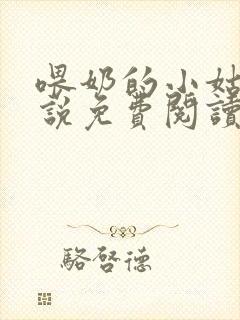 喂奶的小姑
說免費閱讀
駱啓德